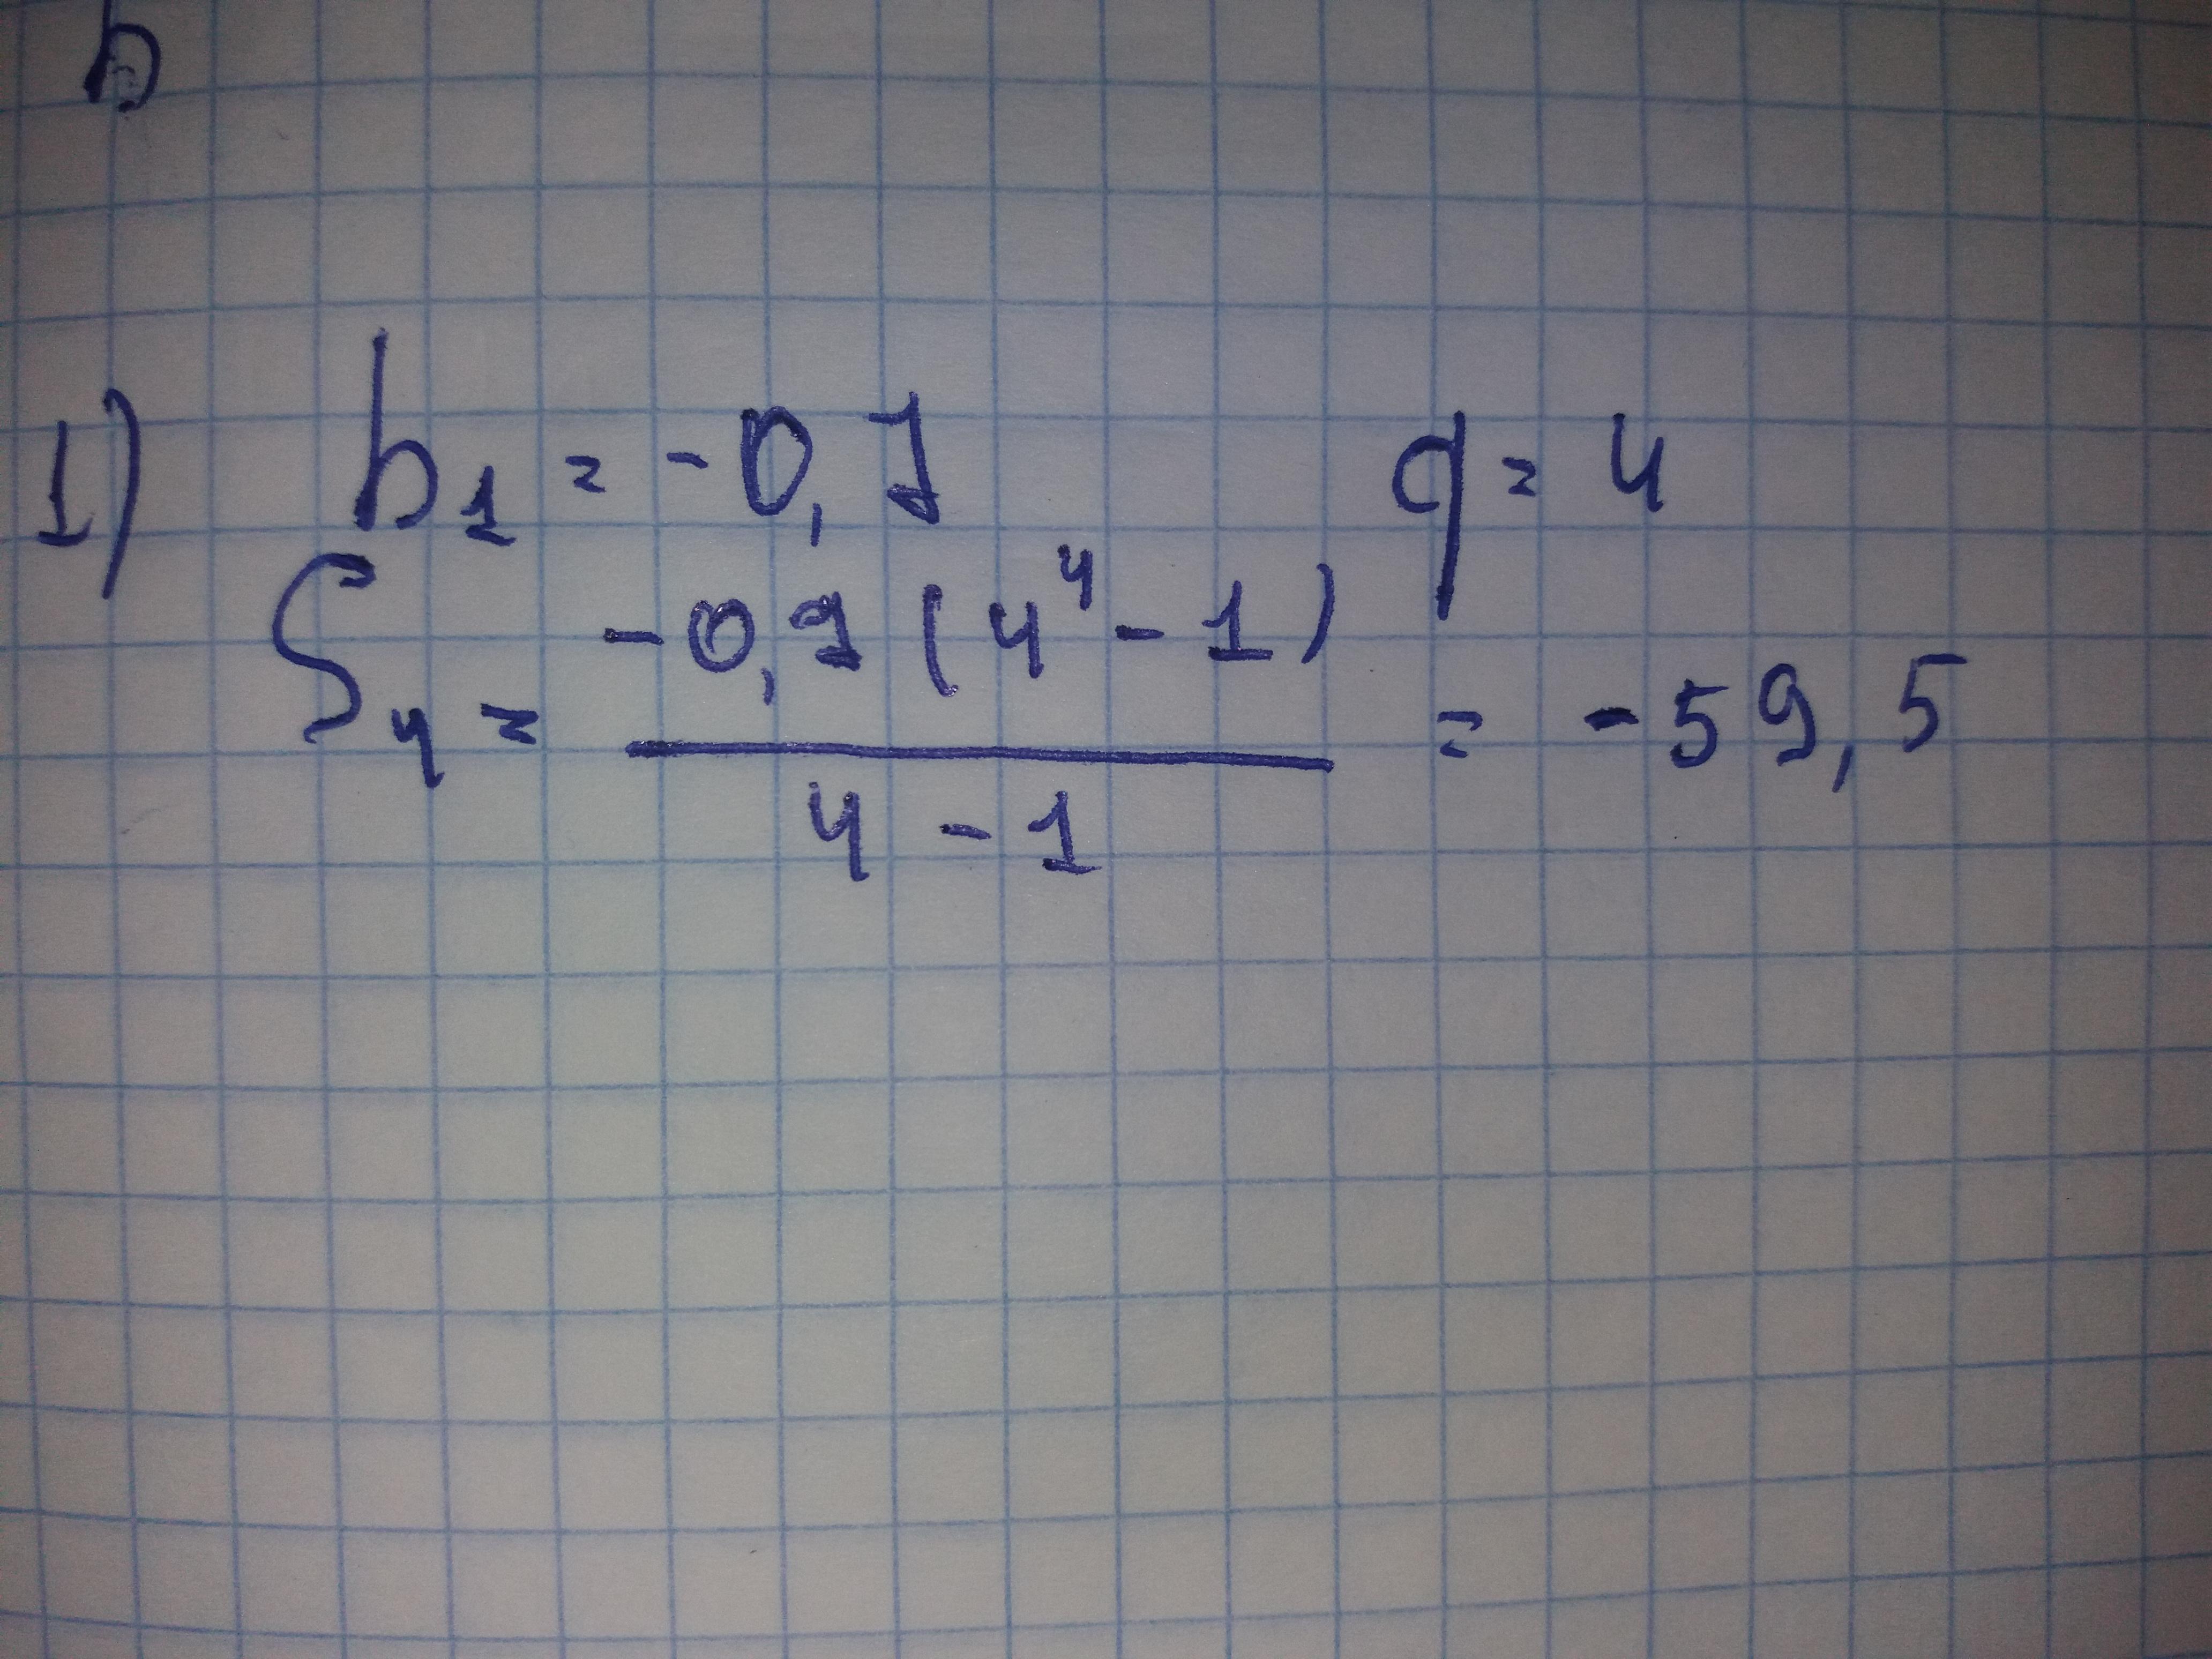 b
1) b₁ = -0,7 q = 4
S₄ = -0,7 (4⁴ - 1) / 4 - 1 = -59,5